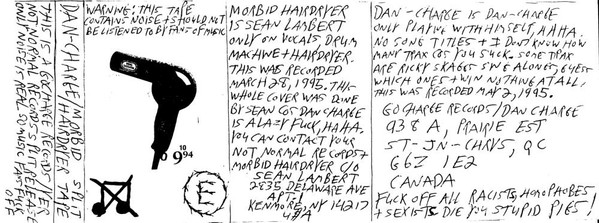 THIS IS A GO CHARGE RECORDS/YES/
NOT NORMAL RECORDS SPLIT RELEASE
ONLY NOISE IS REAL SO MUSIC FART FUCK
OFF
DAN-CHARGE/MORBID SPLIT
HAIRDRYER TAPE
WARNING: THIS TAPE
CONTAINS NOISE + SHOULD NOT
BE LISTENED TO BY FANS OF MUSIC
10
9 94
E
MORBID HAIRDRYER
IS SEAN LAMBERT
ONLY ON VOCALS DRUM
MACHINE + HAIRDRYER.
THIS WAS RECORDED
MARCH 28, 1995. THIS
WHOLE COVER WAS DONE
BY SEAN COS DAN CHARGE
IS A LAZY FUCK, HA HA.
YOU CAN CONTACT YOUR
NOT NORMAL RECORDS +
MORBID HAIRDRYER C/O
SEAN LAMBERT
2835 DELAWARE AVE
APT
KENMORE, NY 14217
USA
DAN-CHARGE IS DAN-CHARGE
ONLY PLAYING WITH HIMSELF, HA HA.
NO SONG TITLES + I DON'T KNOW HOW
MANY TRAX COS YOU SUCK. SOME TRAX
ARE RICKY SKAGGS SINGALONGS, GUESS
WHICH ONES + WIN NOTHING AT ALL,
THIS WAS RECORDED MAY 2, 1995.
GO CHARGE RECORDS/DAN CHARGE
938 A, PRAIRIE EST
ST-JN-CHRYS, QC
G6Z 1E2
CANADA
FUCK OFF ALL RACISTS, HOMOPHOBES
+ SEXISTS DIE YOU STUPID PIES!